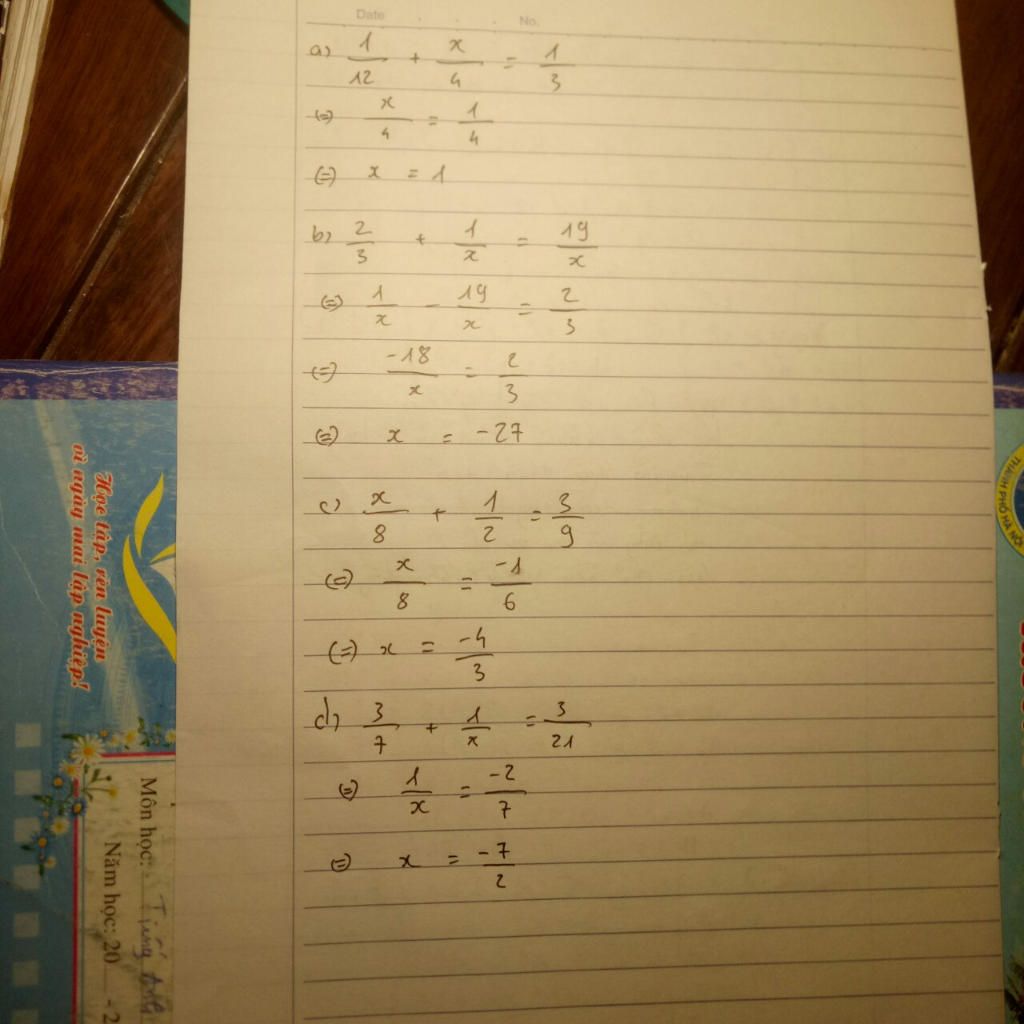 Date . . . No.
a) 1/12 + x/4 = 1/3
(=) x/4 = 1/4
(=) x = 1
b) 2/3 + 1/x = 19/x
(=) 1/x - 19/x = 2/3
(=) -18/x = 2/3
(=) x = -27
c) x/8 + 1/2 = 3/9
(=) x/8 = -1/6
(=) x = -4/3
d) 3/7 + 1/x = 3/21
(=) 1/x = -2/7
(=) x = -7/2
Học tập, rèn luyện
vì ngày mai lập nghiệp!
Môn học: Tiếng
Năm học: 20 - 2
THÀNH PHỐ HÀ NỘI